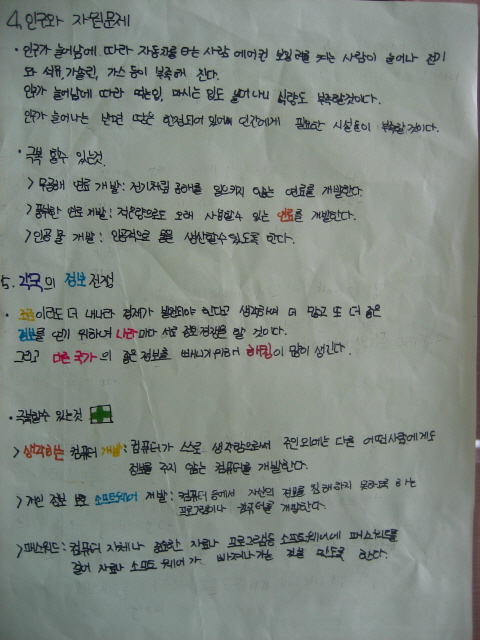 4. 인구와 자원문제
· 인구가 늘어남에 따라 자동차를 타는 사람 에어컨 보일러를 켜는 사람이 늘어나 전기
와 석유, 가솔린, 가스 등이 부족해 진다.
인구가 늘어남에 따라 먹는입, 마시는 입도 늘어나니 식량도 부족할것이다.
인구가 늘어나는 반면 땅은 한정되어 있어 인간에게 필요한 시설들이 부족할 것이다.
· 극복 할수 있는것
> 무공해 연료 개발 : 전기처럼 공해를 일으키지 않는 연료를 개발한다.
> 풍부한 연료 개발 : 적은양으로도 오래 사용할수 있는 연료를 개발한다.
> 인공 물 개발 : 인공적으로 물을 생산할수 있도록 한다.
5. 각국의 정보전쟁
· 조금이라도 더 내나라 경제가 발전되야 한다고 생각하며 더 많고 또 더 좋은
정보를 얻기 위하여 나라마다 서로 정보전쟁을 할 것이다.
그리고 다른 국가의 좋은 정보를 빼내기위해 해킹이 많이 생긴다.
· 극복할수 있는것
> 생각하는 컴퓨터 개발 : 컴퓨터가 스스로 생각함으로써 주인외에는 다른 어떤사람에게도
정보를 주지 않는 컴퓨터를 개발한다.
> 개인 정보 보호 소프트웨어 개발 : 컴퓨터 등에서 자신의 정보를 침해하지 못하도록 하는
프로그램이나 컴퓨터를 개발한다.
> 패스워드 : 컴퓨터 자체나 중요한 자료나 프로그램등 소프트웨어에 패스워드를
걸어 자료나 소프트웨어가 빠져나가는 것을 막도록 한다.